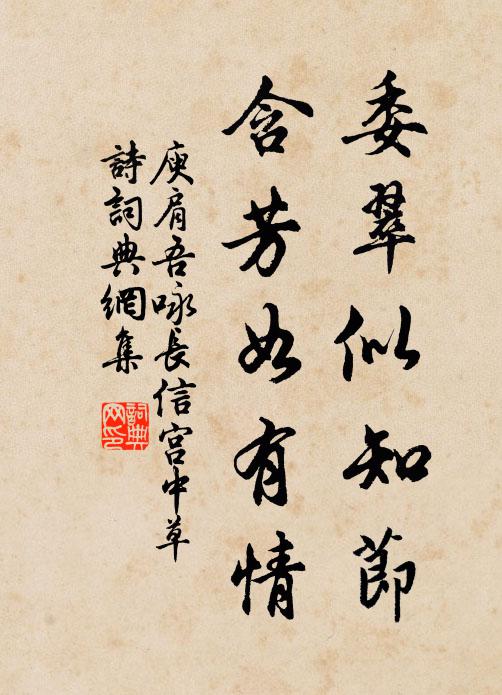 委翠似知節
含芳如有情
庾肩吾咏長信宮中草
詩詞典網集
詞典网印